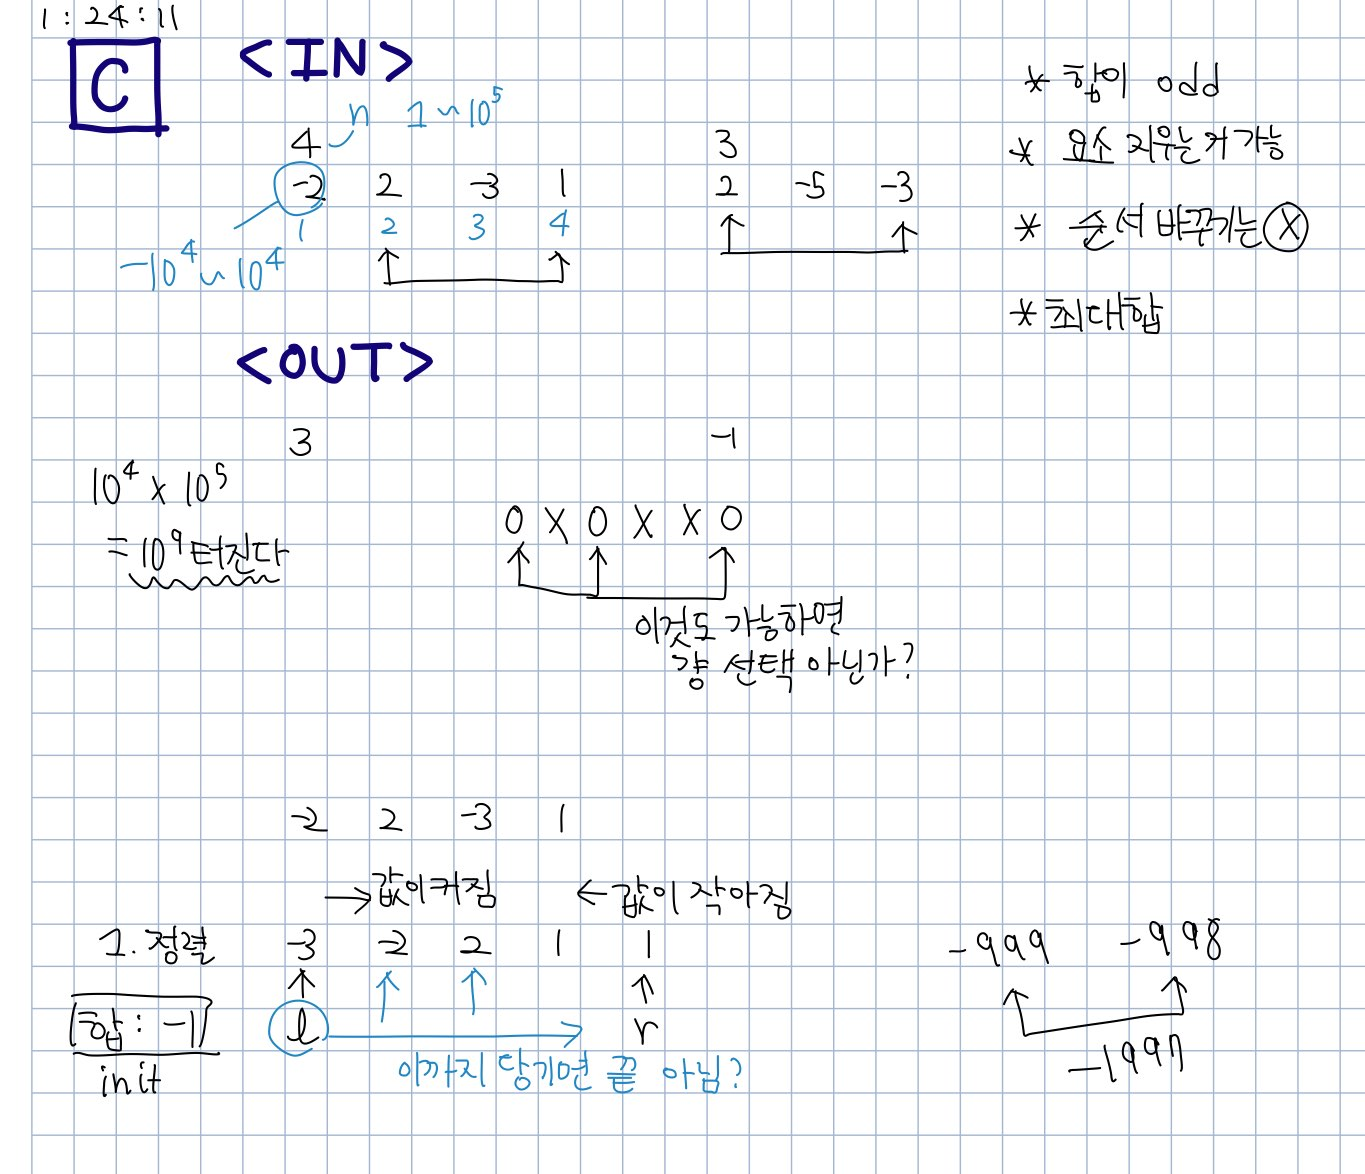 1 : 24 : 11
C
<IN>
n 1~10^5
4
-2 2 -3 1
1 2 3 4
-10^4~10^4
3
2 -5 -3
* 합이 odd
* 요소 지우는거 가능
* 순서 바꾸기는 X
* 최대합
<OUT>
3
-1
10^4 x 10^5
= 10^9 터진다
O X O X X O
이것도 가능하면
걍 선택 아닌가?
-2 2 -3 1
→ 값이 커짐
← 값이 작아짐
1. 정렬 -3 -2 2 1 1
합 : -1
init
l
r
이까지 당기면 끝 아님?
-999 -998
-1997